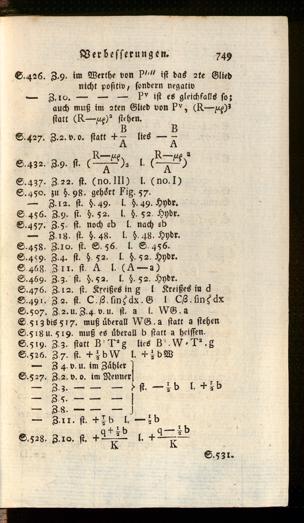 Verbesserungen. 749
S.426. Z.9. im Werthe von P'''' ist das 2te Glied
nicht positiv, sondern negativ
— Z.10. — — — Pᵛ ist es gleichfalls so;
auch muß im 2ten Glied von Pᵛ, (R—μϱ)³
statt (R—μϱ)² stehen.
S.427. Z.2. v. o. statt + B/A lies — B/A
S.432. Z.9. st. (R—μϱ/A)₂ l. (R—μϱ/A)²
S.437. Z 22. st. (no. III) l. (no. I)
S.450. zu §. 98. gehört Fig. 57.
— Z.12. st. §. 49. l. §. 49. Hydr.
S.456. Z.9. st. §. 52. l. §. 52. Hydr.
S.457. Z.5. st. noch eb l. nach eb
— Z.18. st. §. 48. l. §. 48. Hydr.
S.458. Z.10. st. S. 56. l S. 456.
S.459. Z.4. st. §. 52. l. §. 52. Hydr.
S.468. Z 11. st. A l. (A—a)
S.469. Z.3. st. §. 52. l. §. 52. Hydr.
S.476. Z.12. st. Kreißes in g l Kreißes in d
S.491. Z.2. st. C.ß. sin ζ dx . G l Cß. sin ζ dx
S.507. Z.2. u. Z.4 v. u. st. a l. WG. a
S.513 bis 517. muß überall WG. a statt a stehen
S.518 u. 519. muß es überall b statt a heissen.
S.519. Z.3. statt B¹T²g lies B¹.W.T².g
S.526. Z.7. st. + ½ b W l. + ½ b W
— Z 4. v. u. im Zähler
S.527. Z.2. v. o. im Nenner
— Z.3. — — — st. — ½ b l. + ½ b
— Z.5. — — —
— Z.8. — — —
— Z.11. st. + ½ b l. — ½ b
S.528. Z.10. st. + q+½b/K l. + q—½b/K
S.531.